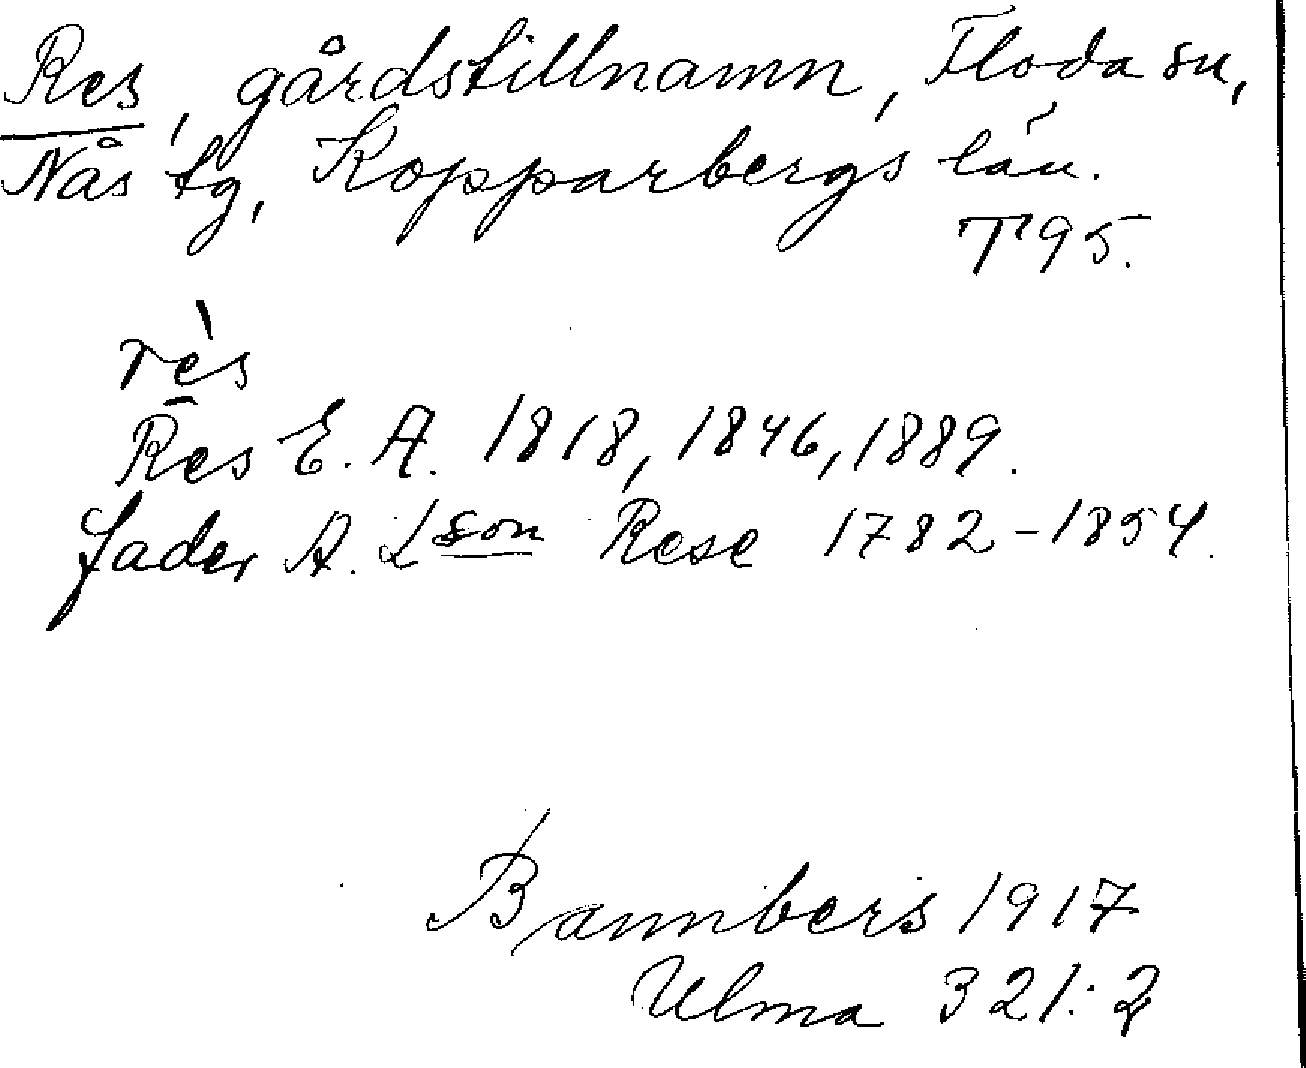 Res, gårdstillnamn, Floda sn,
Nås tg, Kopparbergs län.
T95.
rè̱s
Res E. A. 1818, 1846, 1889.
fader A. Lson Rese 1782-1854.
Bannbers 1917
Ulma 321:2